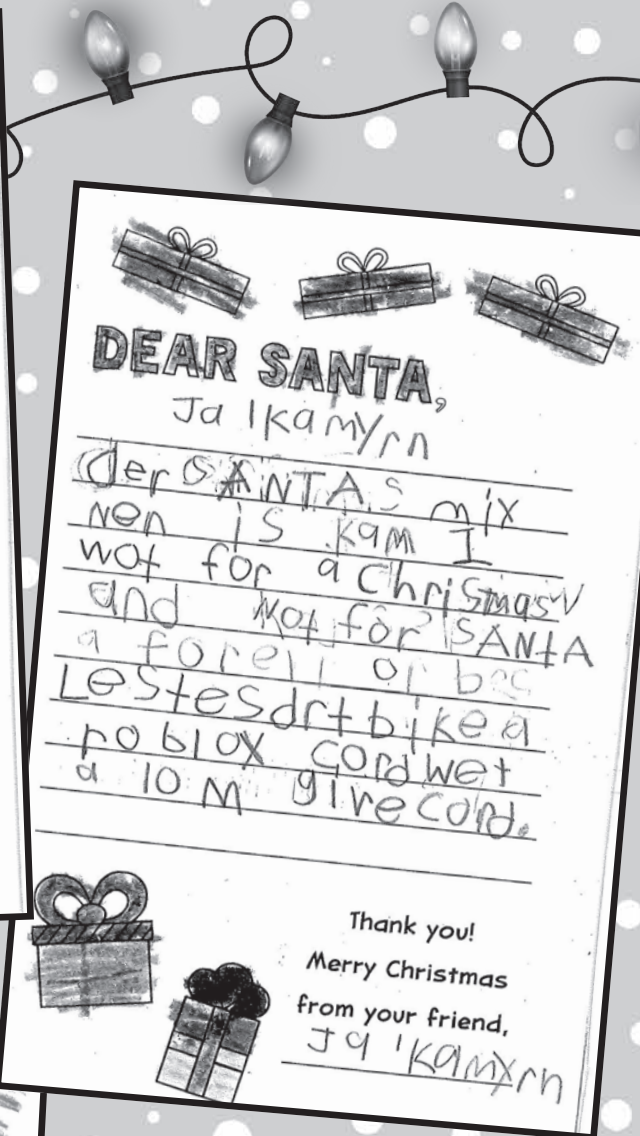 DEAR SANTA,
Ja'Kamyrn
der SANTA.S mix
nen is Kam I
wot for a Christmas
and wot for SANTA
a forell or
Lestesdrt bike a
roblox cord wet
a 10 M give cord.
Thank you!
Merry Christmas
from your friend,
Ja'Kamyrn